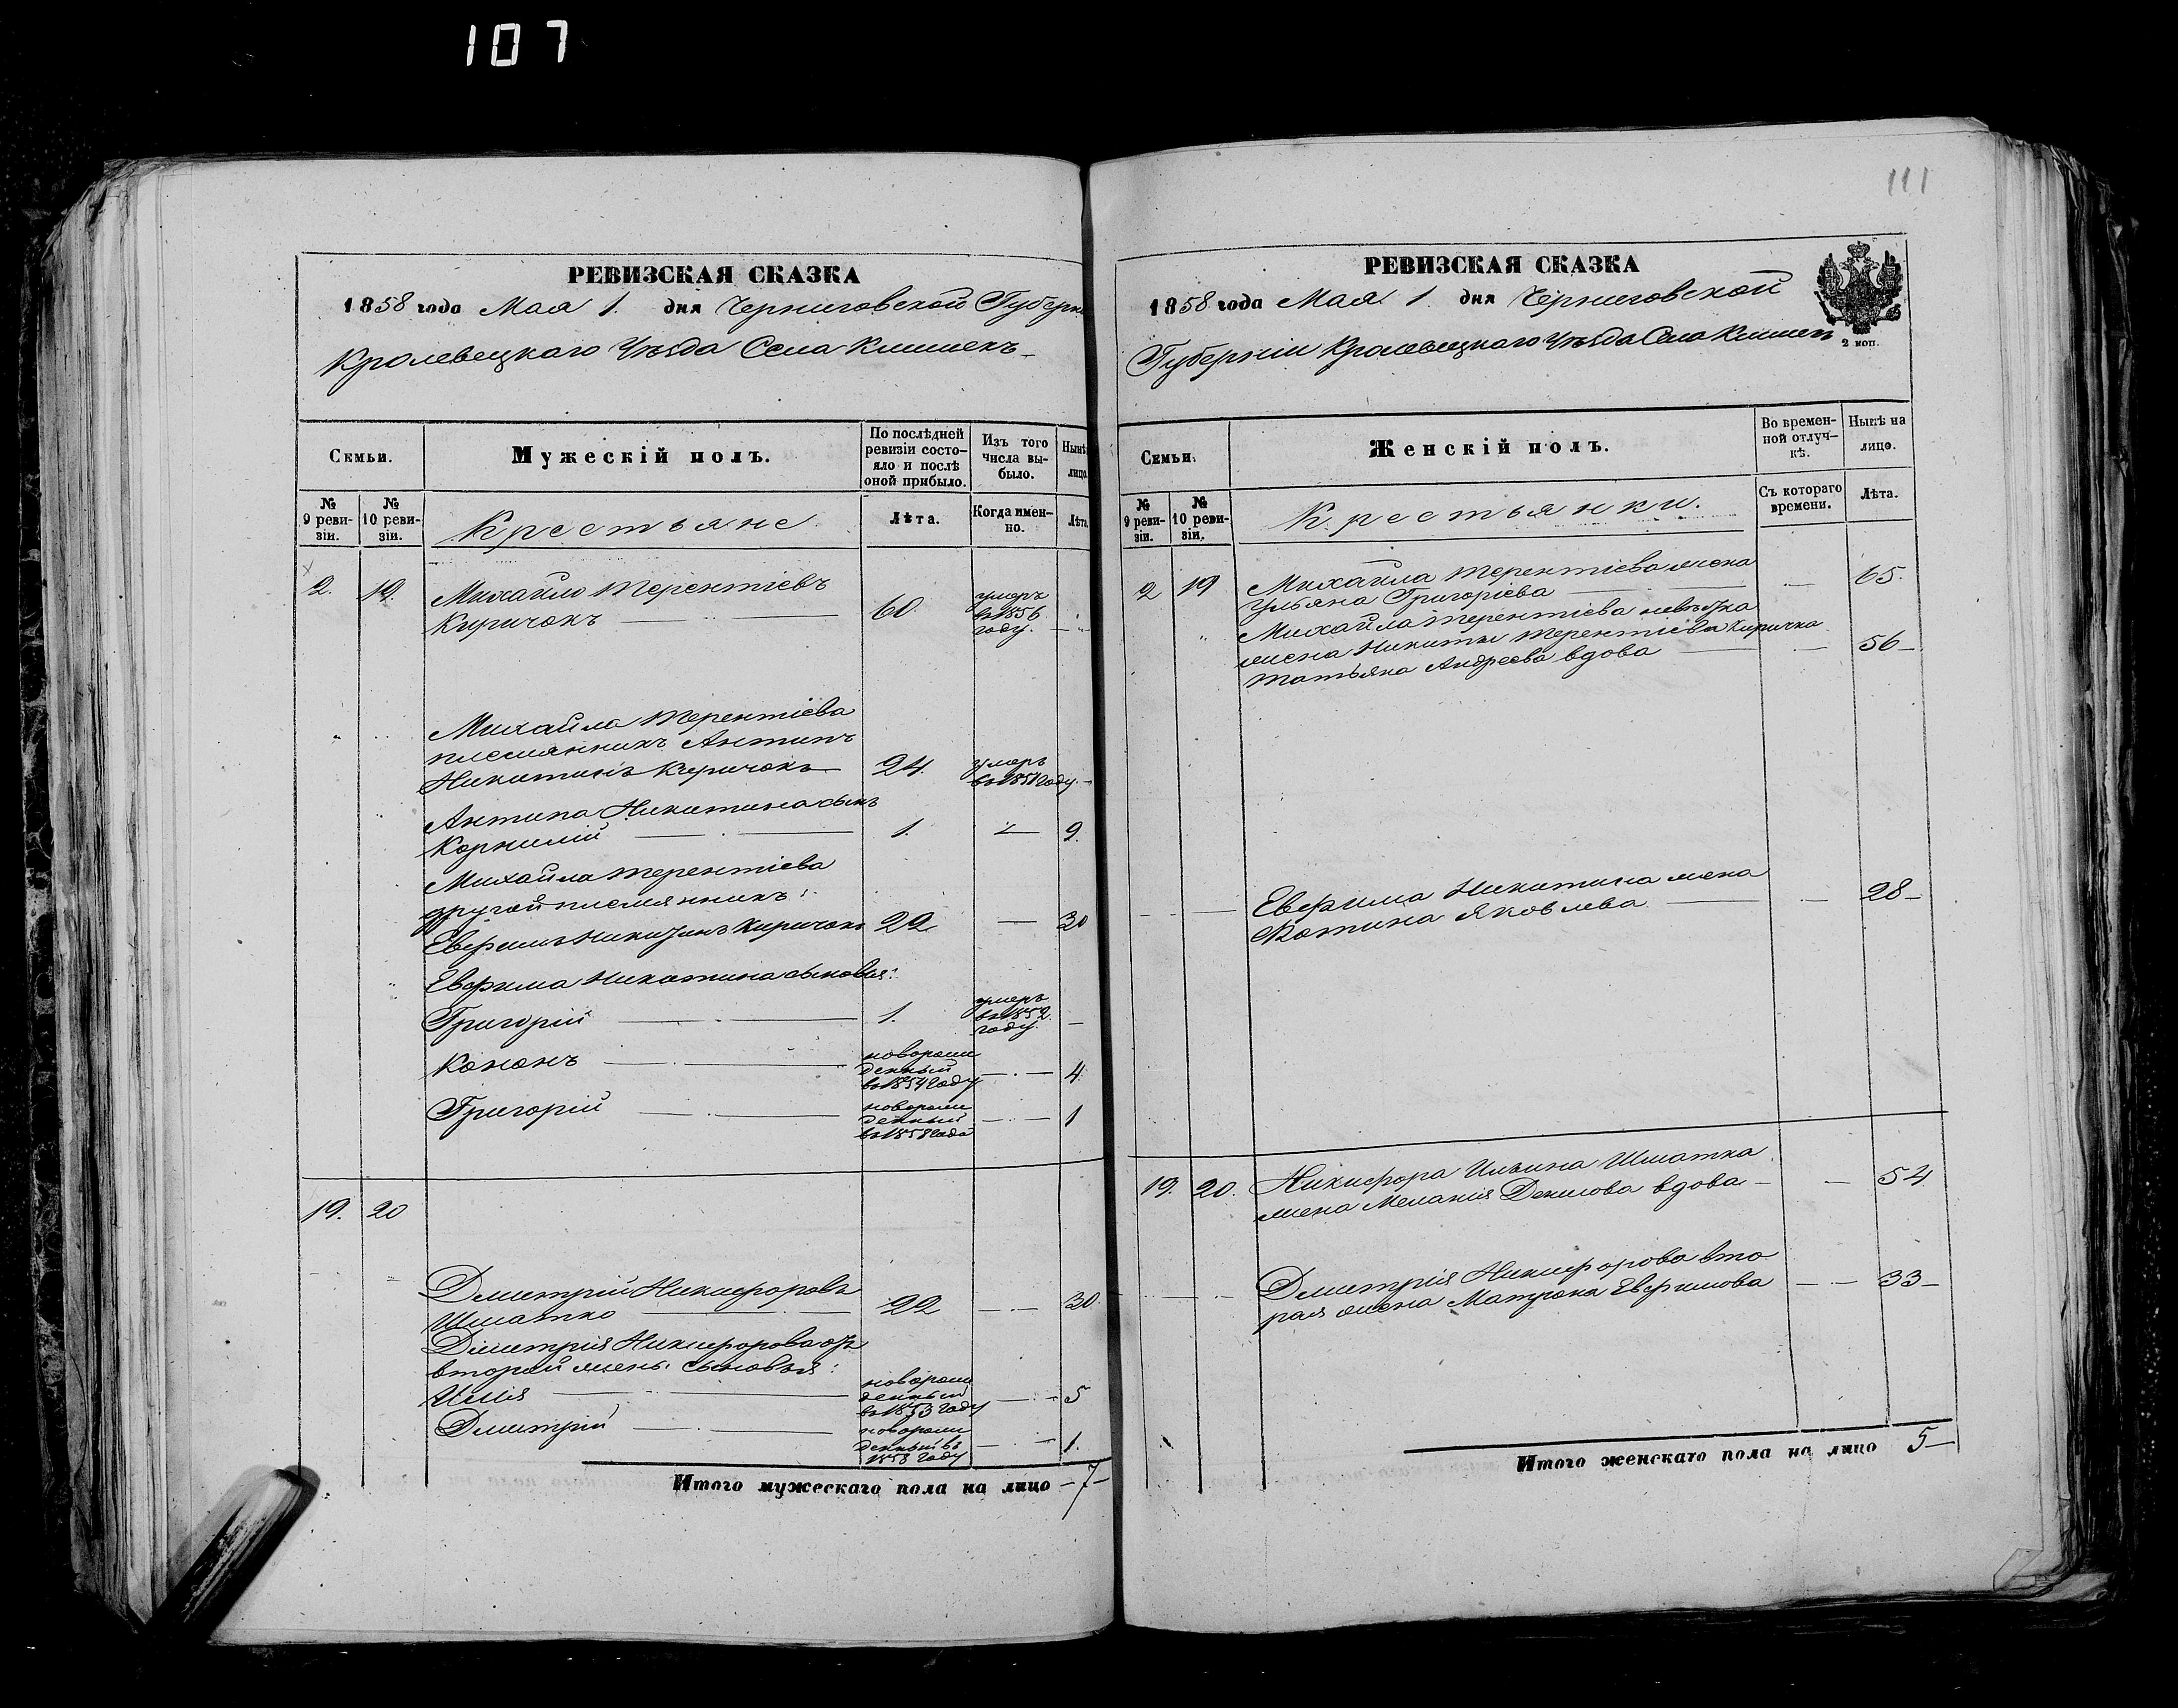 107
РЕВИЗСКАЯ СКАЗКА
1858 года Мая 1. дня Черниговской Губерн
Кролевецкаго Уѣзда Села Клишекъ
Семьи.
Мужескій полъ.
По послѣдней ревизіи состояло и послѣ оной прибыло.
Изъ того числа выбыло.
Нынѣ лицо
№ 9 ревизіи.
№ 10 ревизіи.
Крестьяне.
Лѣта.
Когда именно.
Лѣта
2. 19. Михайло Терентіевъ
Киричокъ 60. умеръ въ 1856 году.
Михайла Терентіева
племянникъ Антипъ
Никитинъ Киричокъ 24. умеръ въ 1851 году.
Антипа Никитина сынъ
Корнилій 1. 9.
Михайла Терентіева
другой племянникъ:
Евфимъ Никитинъ Киричокъ 22 30
Евфима Никитина сыновья:
Григорій 1. умеръ въ 1852 году.
Кононъ новорожденный въ 1854 году 4.
Григорій новорожденный въ 1858 года 1
19. 20
Дмитрій Никифоровъ
Шматко 22 30.
Дмитрія Никифорова отъ
второй жены сыновья:
Илія новорожденный въ 1853 году 5
Дмитрій новорожденный въ 1858 году 1.
Итого мужескаго пола на лицо 7
111
РЕВИЗСКАЯ СКАЗКА
1858 года Мая 1. дня Черниговской
Губерніи Кролевецкаго Уѣзда Села Клишекъ
2 коп.
Семьи.
Женскій полъ.
Во временной отлучкѣ.
Нынѣ на лицо.
№ 9 ревизіи.
№ 10 ревизіи.
Крестьянки.
Съ котораго времени.
Лѣта.
2 19 Михайла Терентіева жена
Ульяна Григоріева 65.
Михайла Терентіева невѣстка
жена Никиты Терентіева Киричка
Татьяна Андреева вдова 56
Евфима Никитина жена
Фотина Яковлева 28
19. 20. Никифора Ильина Шматка
жена Меланія Денисова вдова 54
Дмитрія Никифорова вто
рая жена Матрона Евфимова 33
Итого женскаго пола на лицо 5